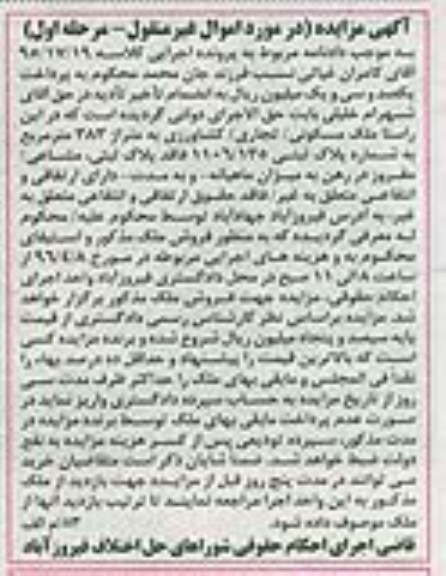 آگهی مزایده (در مورد اموال غیر منقول – مرحله اول)
به موجب دادنامه مربوط به پرونده اجرایی کلاسه ۹۵/۱۷/۱۹
آقای کامران غیاثی نسب فرزند جان محمد محکوم به پرداخت
یکصد و سی و یک میلیون ریال به انضمام تأخیر تأدیه در حق آقای
شهرام خلیلی بابت حق الاجرای دولتی گردیده است که در این
راستا ملک مسکونی/ تجاری/ کشاورزی به متراژ ۳۸۳ مترمربع
به شماره پلاک ثبتی ۱۱۰۶/۱۳۵ فاقد پلاک ثبتی، مشاعی/
مفروز در رهن به میزان ماهیانه- و به مدت- دارای ارتفاقی و
انتفاعی متعلق به غیر/ فاقد حقوق ارتفاقی و انتفاعی متعلق به
غیر، به آدرس فیروزآباد جهادآباد توسط محکوم علیه/ محکوم
له معرفی گردیده که به منظور فروش ملک مذکور و استیفای
محکوم به و هزینه های اجرایی مربوطه در مورخ ۹۶/۴/۸ از
ساعت ۸ الی ۱۱ صبح در محل دادگستری فیروزآباد واحد اجرای
احکام حقوقی، مزایده جهت فروش ملک مذکور برگزار خواهد
شد. مزایده براساس نظر کارشناس رسمی دادگستری از قیمت
پایه سیصد و پنجاه میلیون ریال شروع شده و برنده مزایده کسی
است که بالاترین قیمت را پیشنهاد و حداقل ده درصد بهاء را
نقداً فی المجلس و مابقی بهای ملک را حداکثر ظرف مدت سی
روز از تاریخ مزایده به حساب سپرده دادگستری واریز نماید در
صورت عدم پرداخت مابقی بهای ملک توسط برنده مزایده در
مدت مذکور، سپرده تودیعی پس از کسر هزینه مزایده به نفع
دولت ضبط خواهد شد. ضمناً شایان ذکر است متقاضیان خرید
می توانند در مدت پنج روز قبل از مزایده جهت بازدید از ملک
مذکور به این واحد اجرا مراجعه نمایند تا ترتیب بازدید آنها از
ملک موصوف داده شود.
۸۳/م الف
قاضی اجرای احکام حقوقی شوراهای حل اختلاف فیروزآباد